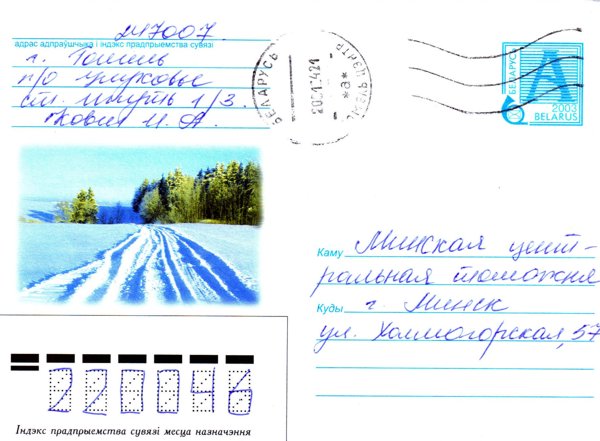 247007
адрас адпраўшчыка і індэкс прадпрыемства сувязі
г. Гомель
п/о
ст. 1/3.
И. А.
БЕЛАРУСЬ
*а*
БЕЛАРУСЬ
А
2003
BELARUS
Каму Минская цент-
ральная таможня
Куды г. Минск
ул. Холмогорская, 57
220046
Індэкс прадпрыемства сувязі месца назначэння